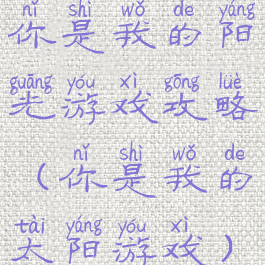 nǐ shì wǒ de yáng
你是我的阳
guāng yóu xì gōng lüè
光游戏攻略
nǐ shì wǒ de
（你是我的
tài yáng yóu xì
太阳游戏）